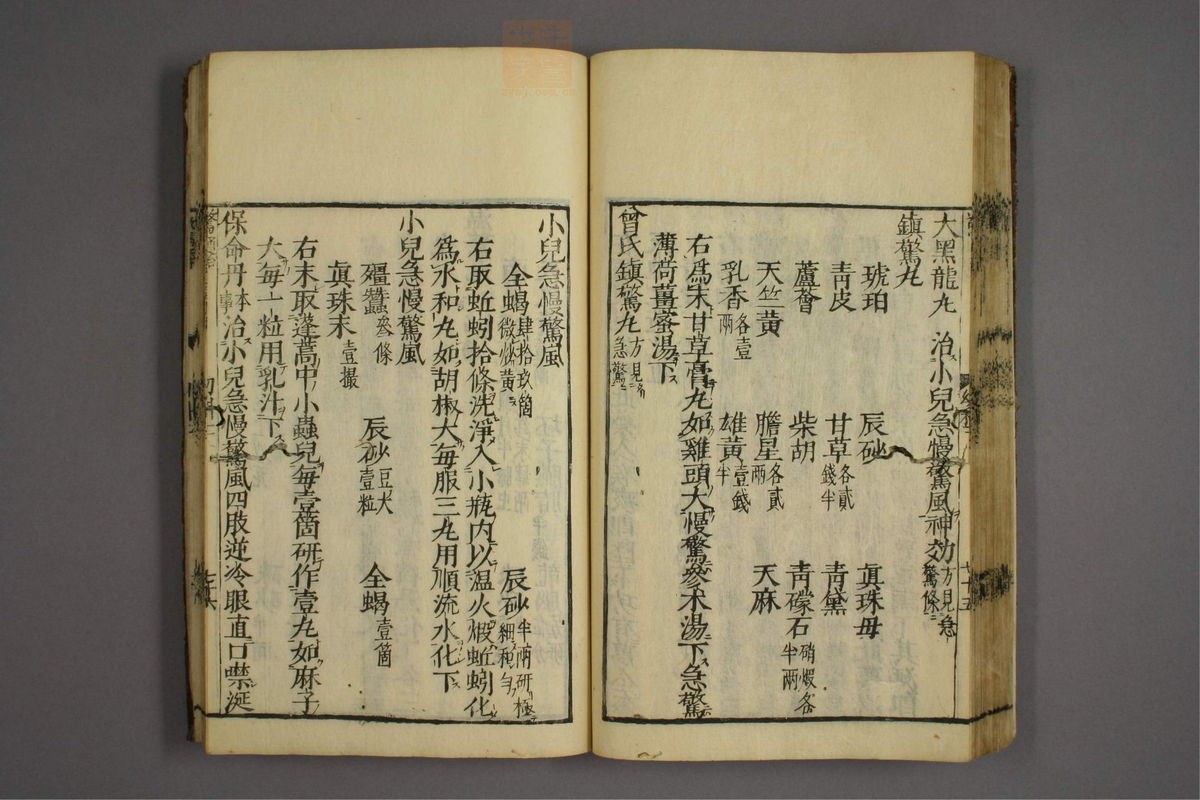 大黑龍丸 治小兒急慢驚風神効方見急驚條
鎮驚丸
琥珀 辰砂 眞珠母
青皮 甘草各貳錢半 青黛
蘆薈 柴胡 青礞石硝煅各半兩
天竺黃 膽星各貳兩 天麻
乳香各壹兩 雄黃壹錢半
右爲末甘草膏丸如雞頭大慢驚參朮湯下急驚
薄荷薑蜜湯下
曾氏鎮驚丸方見急驚
小兒急慢驚風
全蝎肆拾玖箇微炒黃 辰砂半兩研極細和勻
右取蚯蚓拾條洗淨入小瓶内以温火煅蚯蚓化
爲水和丸如胡椒大每服三丸用順流水化下
小兒急慢驚風
殭蠶參條 辰砂豆大壹粒 全蝎壹箇
眞珠末壹撮
右末取蓬蒿中小蟲兒每壹箇研作壹丸如麻子
大每十粒用乳汁下
保命丹本事治小兒急慢驚風四肢逆冷眼直口噤涎